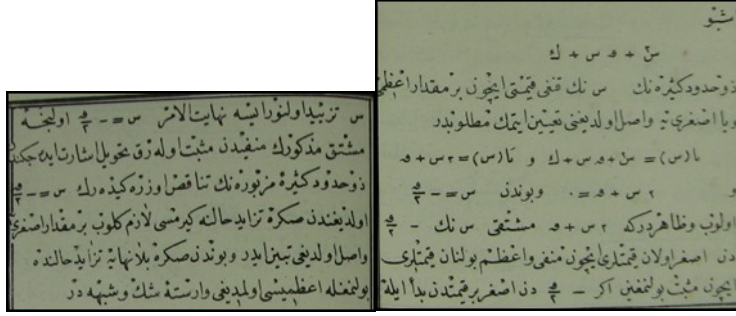 شبو
س٢ + ه س + ك
ذوحدود كثیره نك س نك قنغی قیمتی ایچون بر مقدار اعظمی
ویا اصغری یه واصل اولدیغی تعیین ایتمك مطلوبدر
تا(س) = س٢ + ه س + ك و تا(س) = ٢ س + ه
و ٢ س + ه = ٠ وبوندن س = - ه/٢
اولوب وظاهردركه ٢ س + ه مشتقی س نك - ه/٢
دن اصغر اولان قیمتلری ایچون منفی واعظم بولنان قیمتلری
ایچون مثبت بولنمغین اكر - ه/٢ دن اصغر بر قیمتدن بدأ ایله
س تزیید اولنور ایسه نهایت الامر س = - ه/٢ اولیجه
مشتق مذكورك منفیدن مثبته اوله رق تحویل اشارت ایده جكندن
ذوحدود كثیرهٔ مزبوره نك تناقص اوزره كیده رك س = - ه/٢
اولدیغندن صكره تزاید حالنه كیرمسی لازم كلوب بر مقدار اصغری
واصل اولدیغی تبین ایدر وبوندن صكره بلا نهایه تزاید حالنده
بولنمغله اعظمیسی اولمدیغی وارسته شك وشبهه در